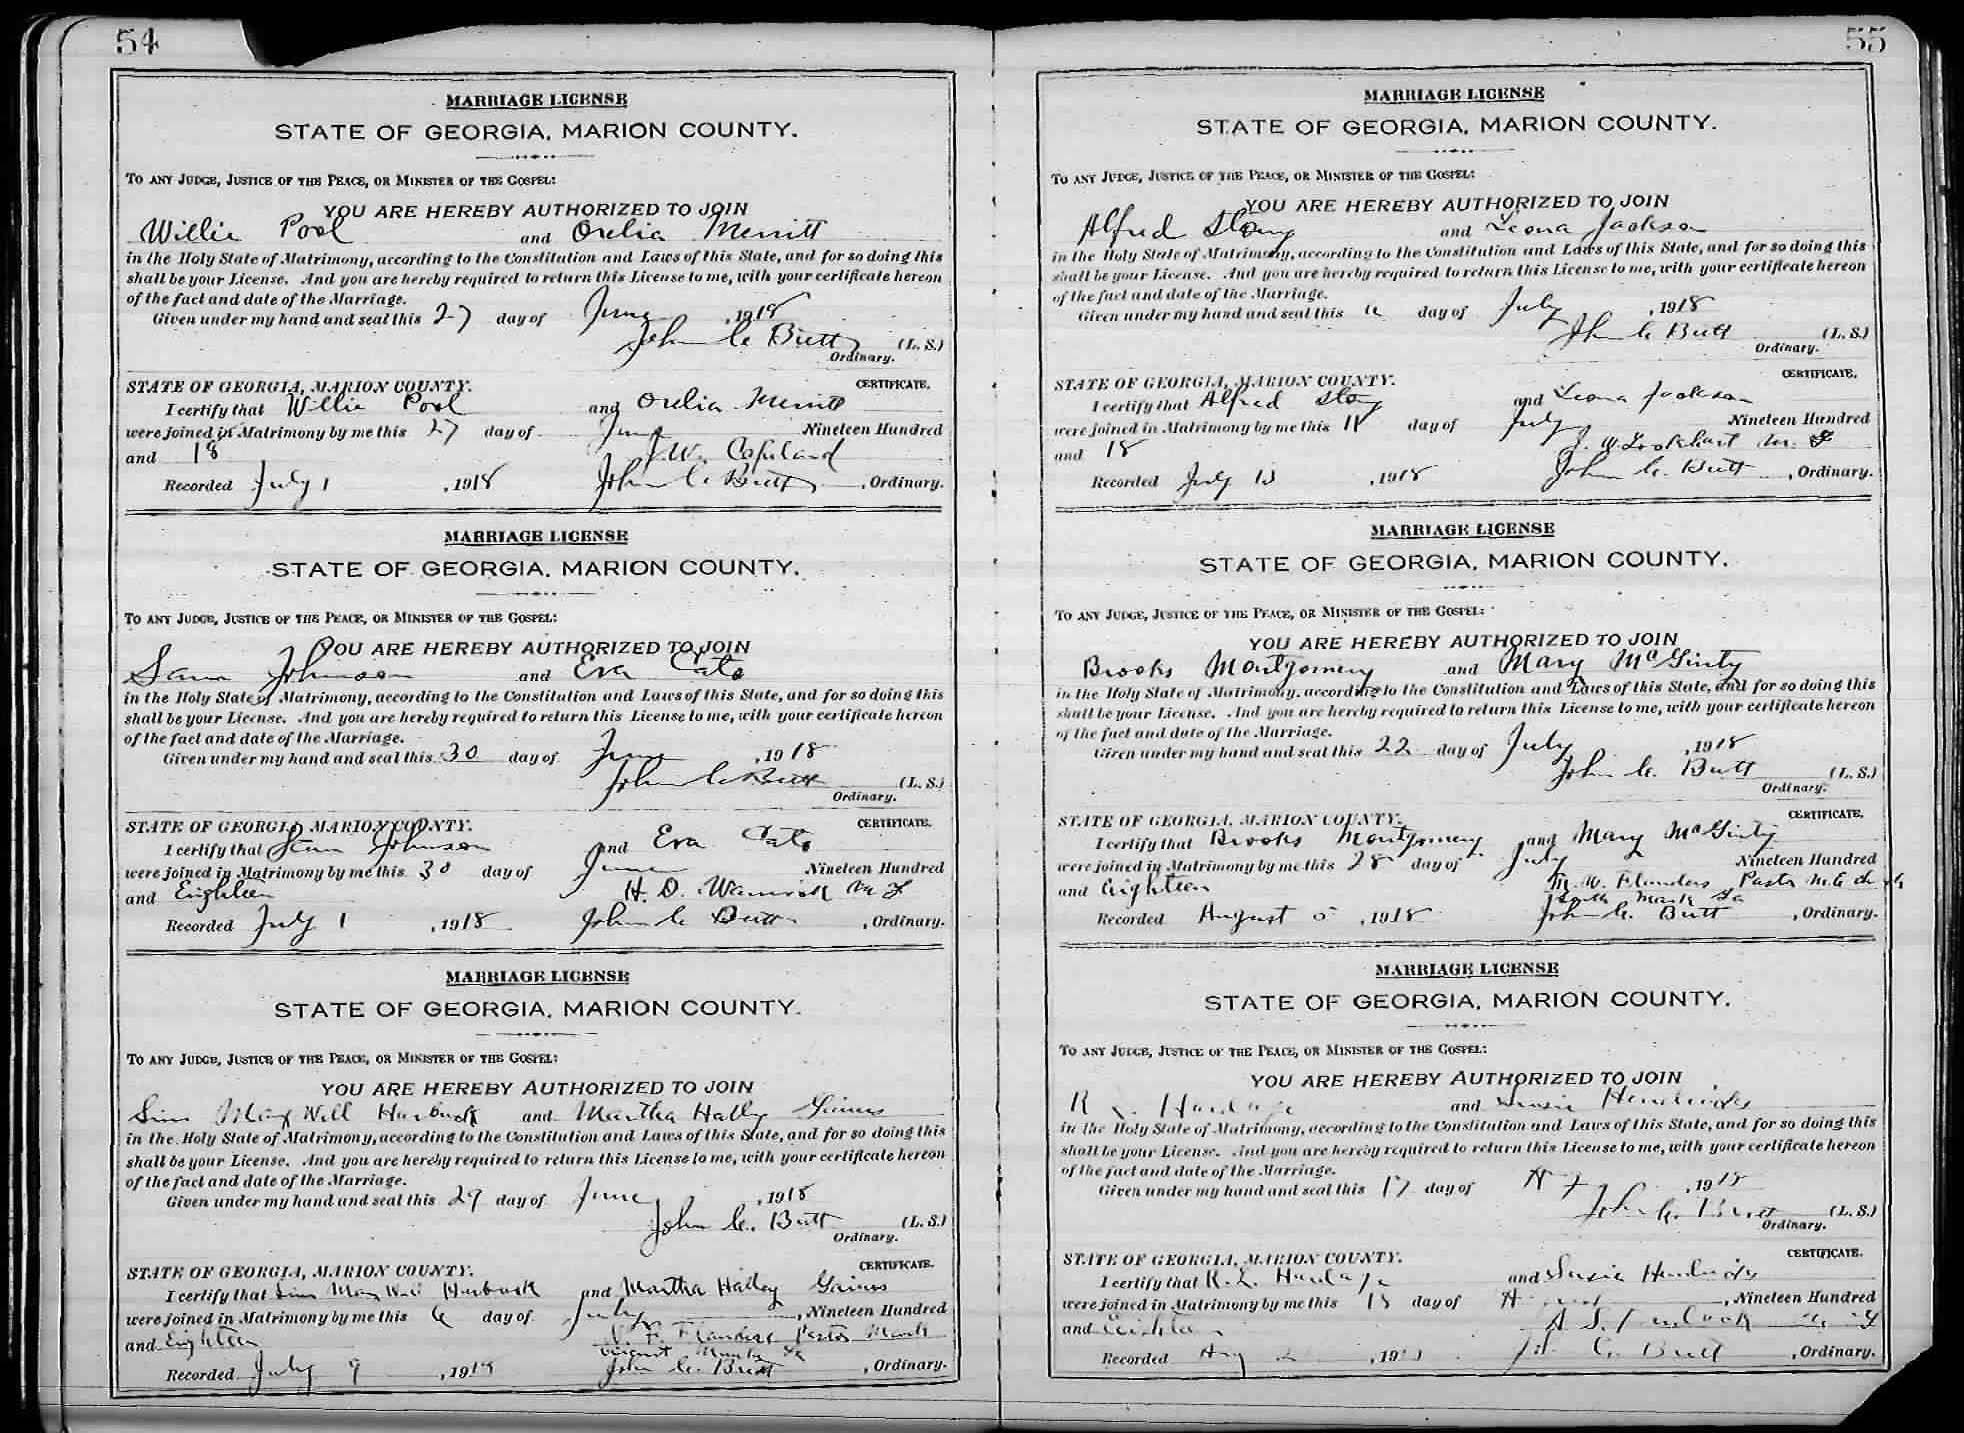 54
MARRIAGE LICENSE
STATE OF GEORGIA, MARION COUNTY.
TO ANY JUDGE, JUSTICE OF THE PEACE, OR MINISTER OF THE GOSPEL:
YOU ARE HEREBY AUTHORIZED TO JOIN
Willie Pool and Orelia Merritt
in the Holy State of Matrimony, according to the Constitution and Laws of this State, and for so doing this
shall be your License. And you are hereby required to return this License to me, with your certificate hereon
of the fact and date of the Marriage.
Given under my hand and seal this 27 day of June, 1918
John C. Butt (L. S.)
Ordinary.
STATE OF GEORGIA, MARION COUNTY. CERTIFICATE.
I certify that Willie Pool and Orelia Merritt
were joined in Matrimony by me this 27 day of June Nineteen Hundred
and 18 J. W. Copeland
Recorded July 1, 1918 John C. Butt, Ordinary.
MARRIAGE LICENSE
STATE OF GEORGIA, MARION COUNTY.
TO ANY JUDGE, JUSTICE OF THE PEACE, OR MINISTER OF THE GOSPEL:
YOU ARE HEREBY AUTHORIZED TO JOIN
Sam Johnson and Eva Cato
in the Holy State of Matrimony, according to the Constitution and Laws of this State, and for so doing this
shall be your License. And you are hereby required to return this License to me, with your certificate hereon
of the fact and date of the Marriage.
Given under my hand and seal this 30 day of June, 1918
John C. Butt (L. S.)
Ordinary.
STATE OF GEORGIA, MARION COUNTY. CERTIFICATE.
I certify that Sam Johnson and Eva Cato
were joined in Matrimony by me this 30 day of June Nineteen Hundred
and Eighteen H. D.
Recorded July 1, 1918 John C. Butt, Ordinary.
MARRIAGE LICENSE
STATE OF GEORGIA, MARION COUNTY.
TO ANY JUDGE, JUSTICE OF THE PEACE, OR MINISTER OF THE GOSPEL:
YOU ARE HEREBY AUTHORIZED TO JOIN
Will Harbuck and Martha Gaines
in the Holy State of Matrimony, according to the Constitution and Laws of this State, and for so doing this
shall be your License. And you are hereby required to return this License to me, with your certificate hereon
of the fact and date of the Marriage.
Given under my hand and seal this 29 day of June, 1918
John C. Butt (L. S.)
Ordinary.
STATE OF GEORGIA, MARION COUNTY. CERTIFICATE.
I certify that Will Harbuck and Martha Gaines
were joined in Matrimony by me this day of July, Nineteen Hundred
and Eighteen Flanders Pastor
Recorded July 9, 1918 John C. Butt, Ordinary.
55
MARRIAGE LICENSE
STATE OF GEORGIA, MARION COUNTY.
TO ANY JUDGE, JUSTICE OF THE PEACE, OR MINISTER OF THE GOSPEL:
YOU ARE HEREBY AUTHORIZED TO JOIN
Alfred and Leona Jackson
in the Holy State of Matrimony, according to the Constitution and Laws of this State, and for so doing this
shall be your License. And you are hereby required to return this License to me, with your certificate hereon
of the fact and date of the Marriage.
Given under my hand and seal this day of July, 1918
John C. Butt (L. S.)
Ordinary.
STATE OF GEORGIA, MARION COUNTY. CERTIFICATE.
I certify that Alfred and Leona Jackson
were joined in Matrimony by me this 11 day of July Nineteen Hundred
and 18 J. W. Lockhart
Recorded July, 1918 John C. Butt, Ordinary.
MARRIAGE LICENSE
STATE OF GEORGIA, MARION COUNTY.
TO ANY JUDGE, JUSTICE OF THE PEACE, OR MINISTER OF THE GOSPEL:
YOU ARE HEREBY AUTHORIZED TO JOIN
Brooks Montgomery and Mary McGinty
in the Holy State of Matrimony, according to the Constitution and Laws of this State, and for so doing this
shall be your License. And you are hereby required to return this License to me, with your certificate hereon
of the fact and date of the Marriage.
Given under my hand and seal this 22 day of July, 1918
John C. Butt (L. S.)
Ordinary.
STATE OF GEORGIA, MARION COUNTY. CERTIFICATE.
I certify that Brooks Montgomery and Mary McGinty
were joined in Matrimony by me this 28 day of July Nineteen Hundred
and Eighteen Flanders Pastor M. E.
Recorded August 5, 1918 John C. Butt, Ordinary.
MARRIAGE LICENSE
STATE OF GEORGIA, MARION COUNTY.
TO ANY JUDGE, JUSTICE OF THE PEACE, OR MINISTER OF THE GOSPEL:
YOU ARE HEREBY AUTHORIZED TO JOIN
and Susie
in the Holy State of Matrimony, according to the Constitution and Laws of this State, and for so doing this
shall be your License. And you are hereby required to return this License to me, with your certificate hereon
of the fact and date of the Marriage.
Given under my hand and seal this 17 day of, 1918
John C. Butt (L. S.)
Ordinary.
STATE OF GEORGIA, MARION COUNTY. CERTIFICATE.
I certify that R. L. Hardage and Susie
were joined in Matrimony by me this 18 day of, Nineteen Hundred
and
Recorded Aug, 19 C. Butt, Ordinary.